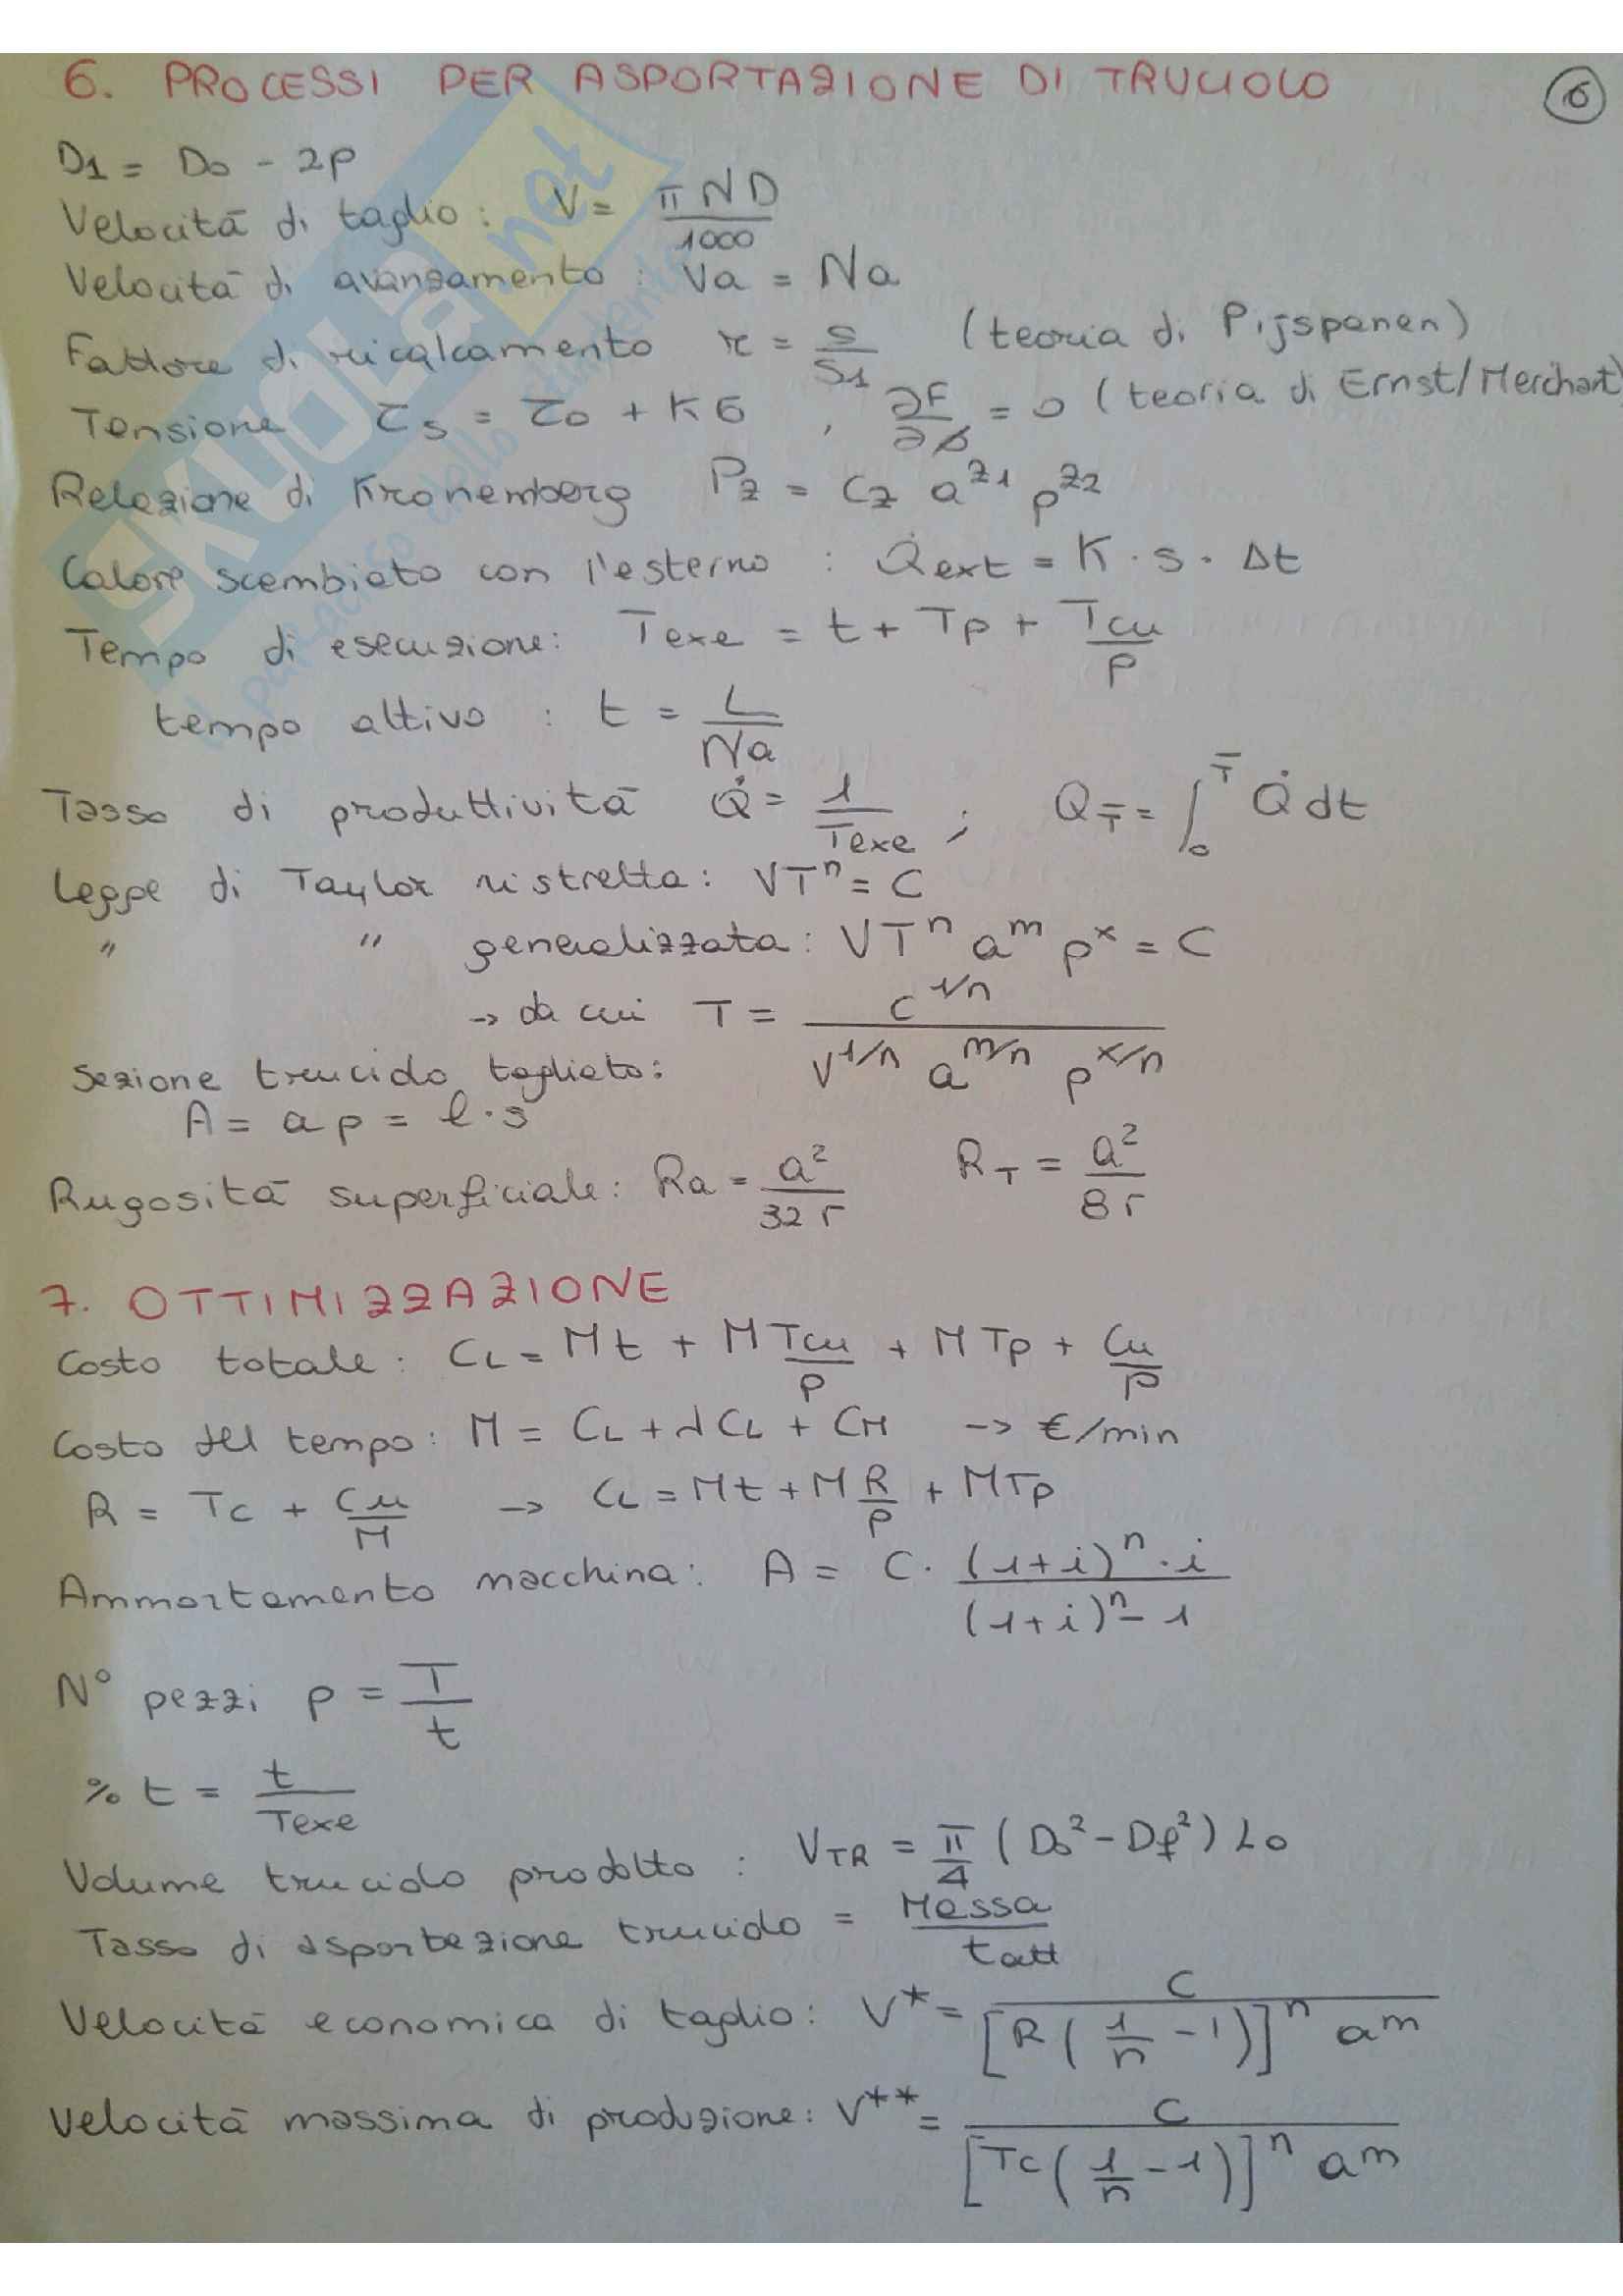 6. PROCESSI PER ASPORTAZIONE DI TRUCIOLO
6
D1 = D0 - 2p
Velocità di taglio: V = πND / 1000
Velocità di avanzamento: Va = Na
Fattore di ricalcamento r = s / s1 (teoria di Pijspanen)
Tensione τs = τ0 + Kσ , ∂F/∂φ = 0 (teoria di Ernst/Merchant)
Relazione di Kronemberg Pz = Cz a^z1 p^z2
Calore scambiato con l'esterno : Q̇ext = K · s · Δt
Tempo di esecuzione: Texe = t + Tp + Tcu/p
tempo attivo : t = L / Na
Tasso di produttività Q̇ = 1 / Texe ; Q_T̄ = ∫₀^T̄ Q̇ dt
Legge di Taylor ristretta: VT^n = C
" " generalizzata: VT^n a^m p^x = C
→ da cui T = C^1/n / V^1/n a^m/n p^x/n
Sezione truciolo tagliato:
A = ap = l · s
Rugosità superficiale: Ra = a² / 32r RT = a² / 8r
7. OTTIMIZZAZIONE
Costo totale: CL = Mt + M Tcu/p + MTp + Cu/p
Costo del tempo: M = CL + λCL + CM → €/min
R = Tc + Cu/M → CL = Mt + M R/p + MTp
Ammortamento macchina: A = C · (1+i)^n · i / (1+i)^n - 1
N° pezzi p = T / t
% t = t / Texe
Volume truciolo prodotto : VTR = π/4 (D0² - Df²) L0
Tasso di asportazione truciolo = Massa / tatt
Velocità economica di taglio: V* = C / [R(1/n - 1)]^n a^m
Velocità massima di produzione: V** = C / [Tc(1/n - 1)]^n a^m
SKUOLA.net
il paradiso dello studente